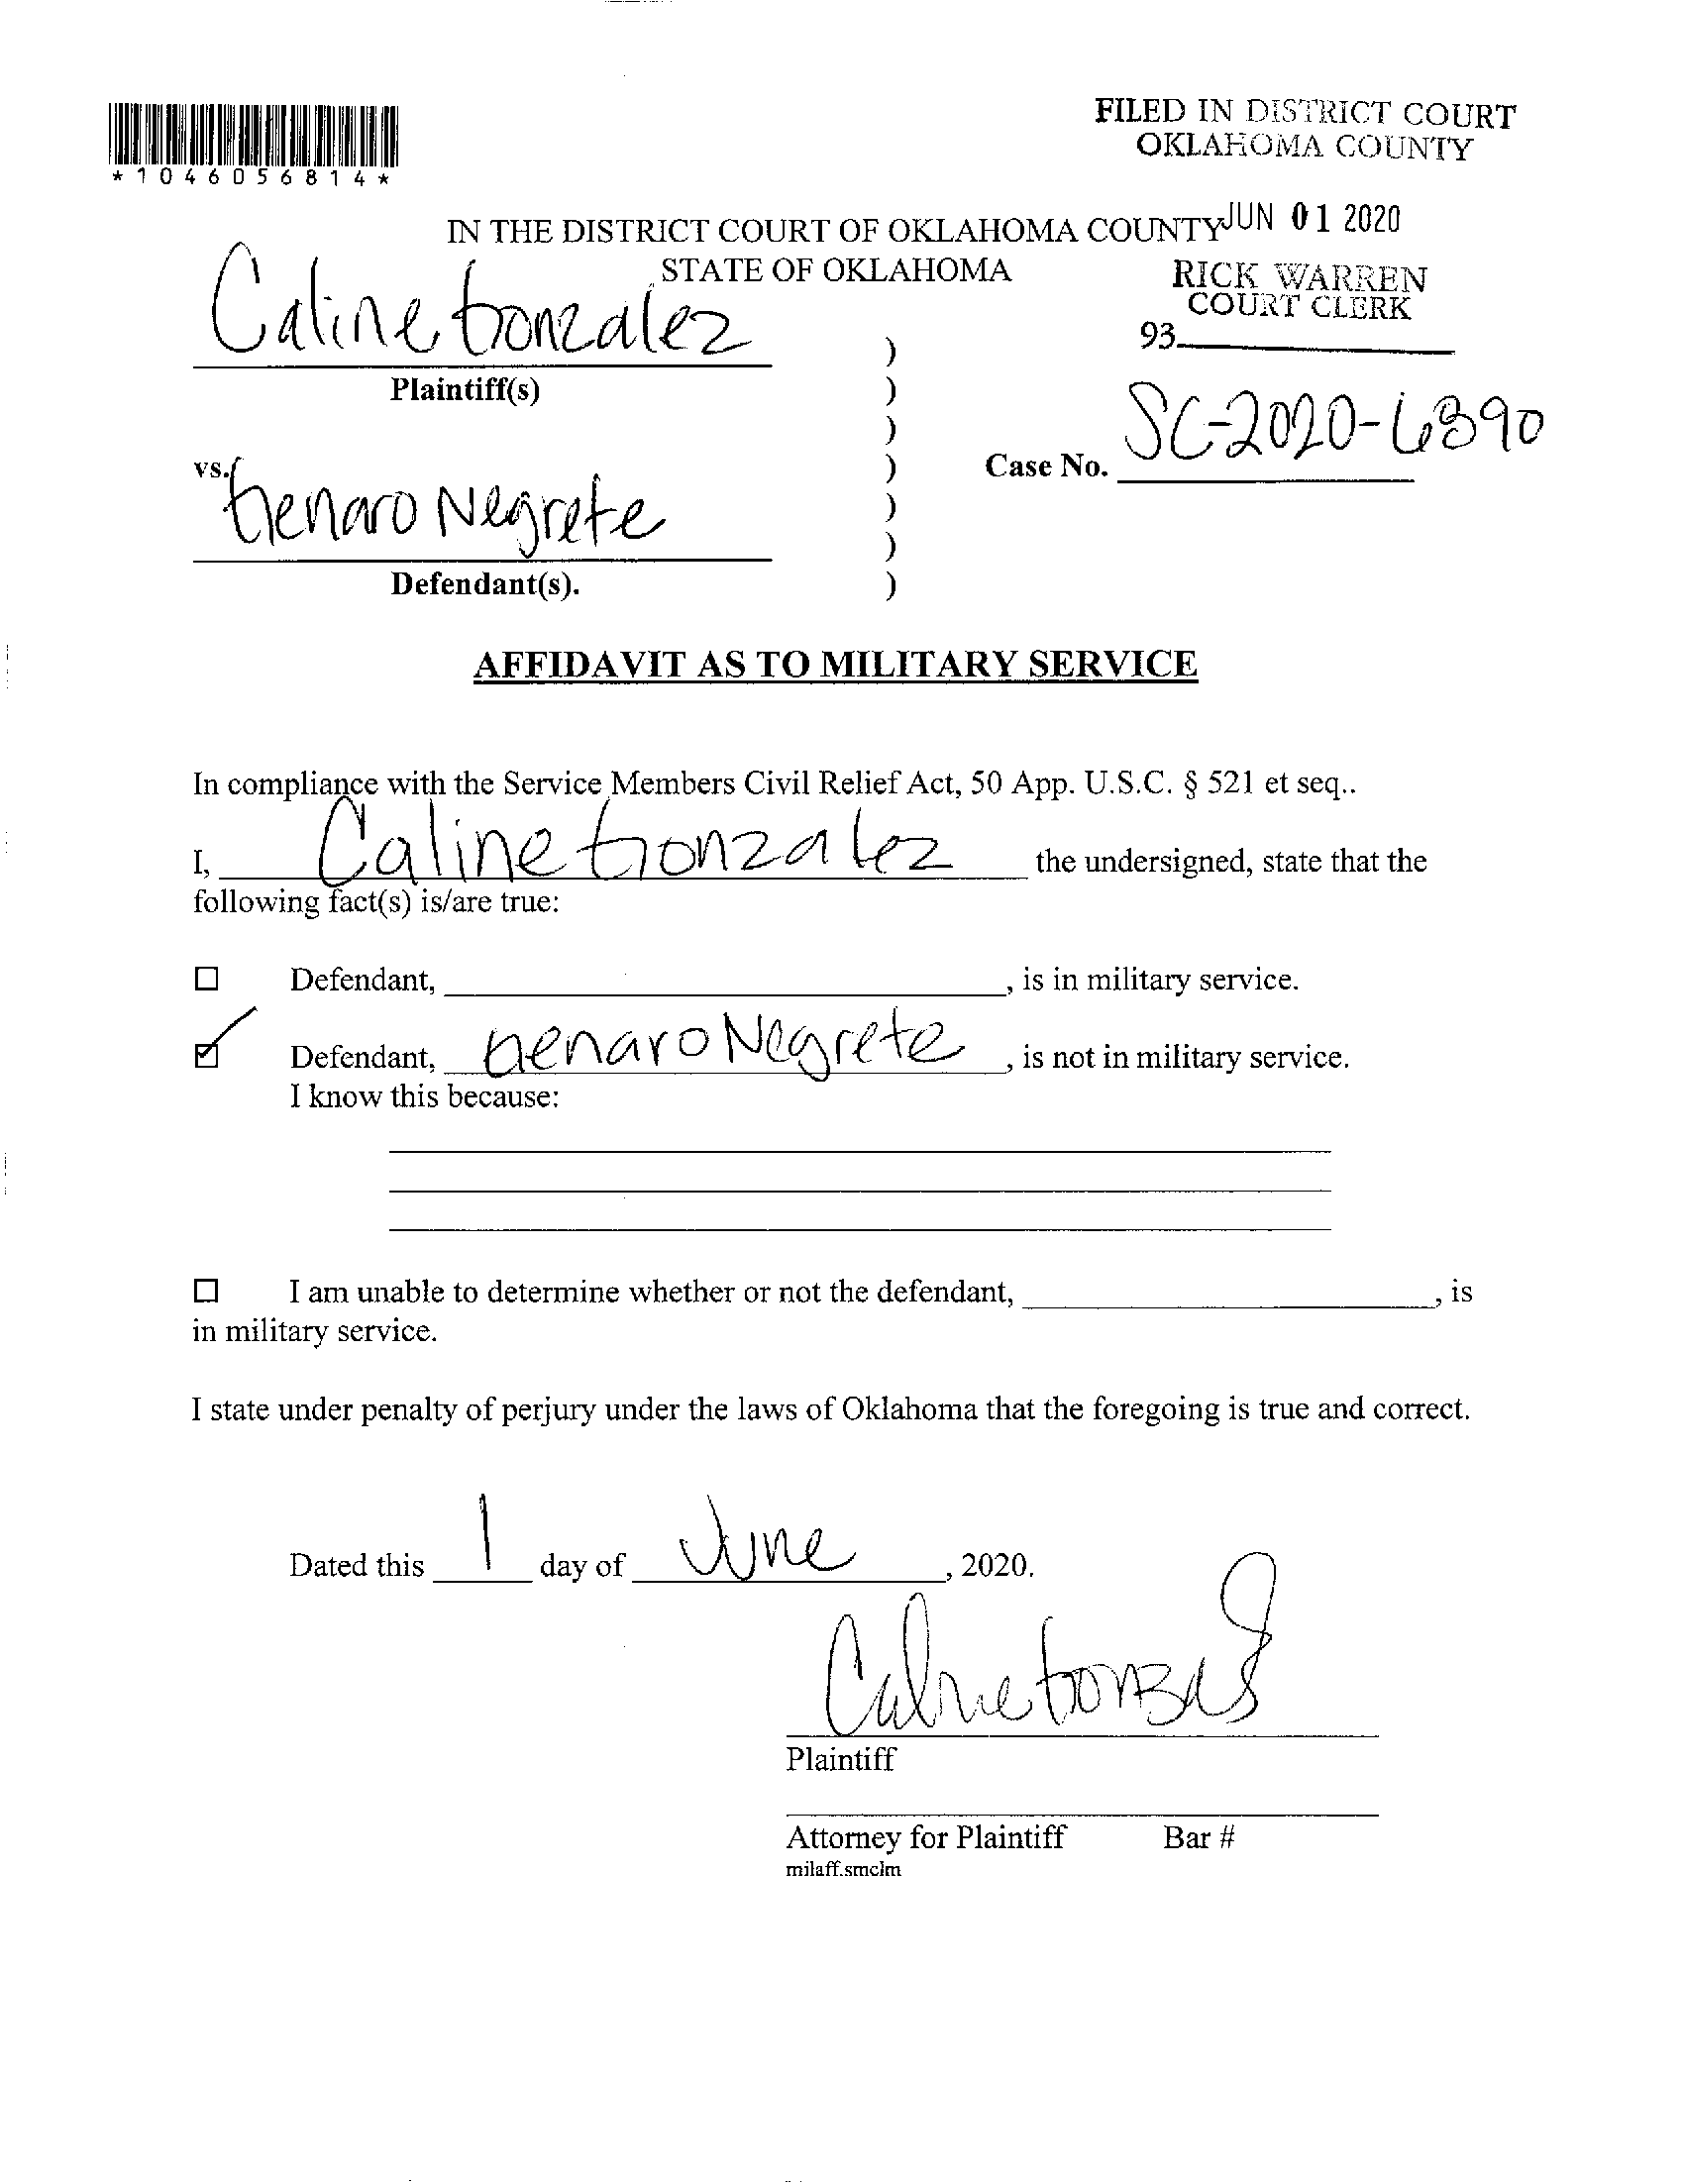 FILED IN DISTRICT COURT
OKLAHOMA COUNTY
*1046056814*
JUN 01 2020
IN THE DISTRICT COURT OF OKLAHOMA COUNTY
STATE OF OKLAHOMA
RICK WARREN
COURT CLERK
93
Caline Gonzalez
)
Plaintiff(s)
)
)
SC-2020-6390
vs.
)
Case No.
Genaro Negrete
)
)
Defendant(s).
)
AFFIDAVIT AS TO MILITARY SERVICE
In compliance with the Service Members Civil Relief Act, 50 App. U.S.C. § 521 et seq..
I, Caline Gonzalez the undersigned, state that the
following fact(s) is/are true:
☐ Defendant, , is in military service.
☑ Defendant, Genaro Negrete , is not in military service.
I know this because:
☐ I am unable to determine whether or not the defendant, , is
in military service.
I state under penalty of perjury under the laws of Oklahoma that the foregoing is true and correct.
Dated this 1 day of June , 2020.
Plaintiff
Attorney for Plaintiff Bar #
milaff.smclm